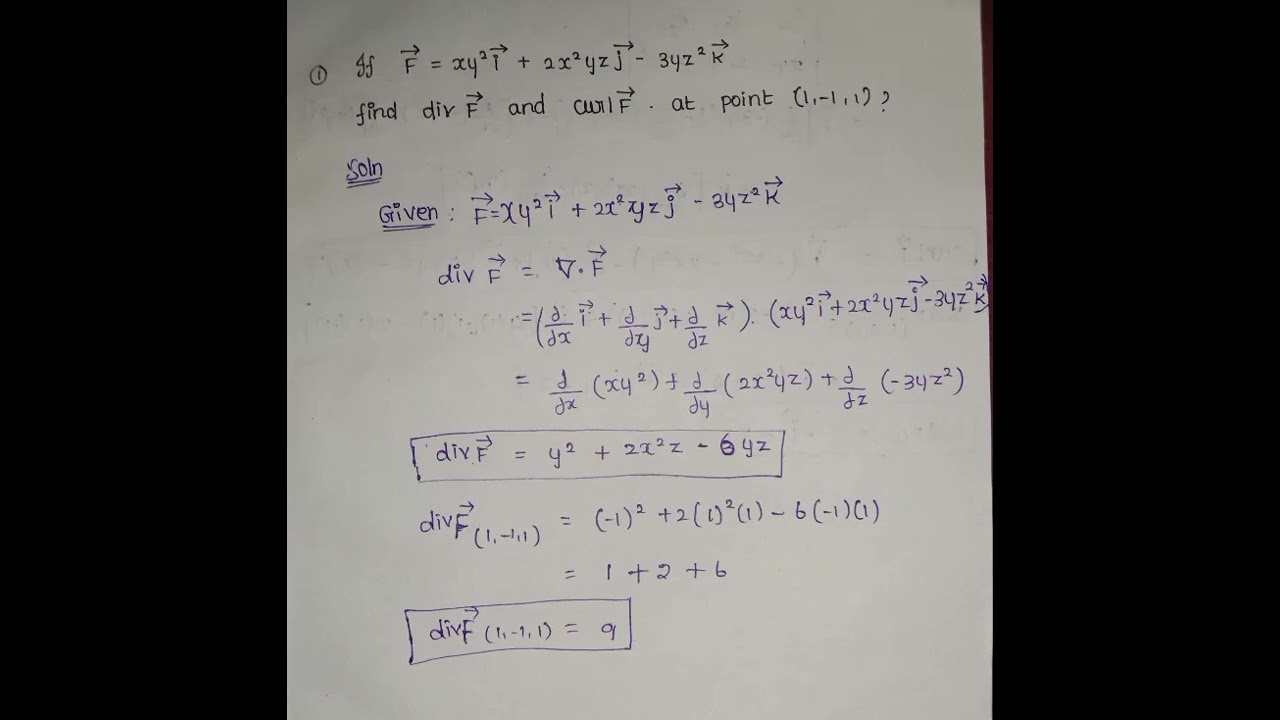 ① If F⃗ = xy²i⃗ + 2x²yzj⃗ - 3yz²k⃗
find div F⃗ and curl F⃗ . at point (1,-1,1) ?
Soln
Given : F⃗ = xy²i⃗ + 2x²yzj⃗ - 3yz²k⃗
div F⃗ = ∇.F⃗
= (∂/∂x i⃗ + ∂/∂y j⃗ + ∂/∂z k⃗). (xy²i⃗ + 2x²yzj⃗ - 3yz²k⃗)
= ∂/∂x (xy²) + ∂/∂y (2x²yz) + ∂/∂z (-3yz²)
div F⃗ = y² + 2x²z - 6yz
div F⃗ (1,-1,1) = (-1)² + 2(1)²(1) - 6(-1)(1)
= 1 + 2 + 6
div F⃗ (1,-1,1) = 9